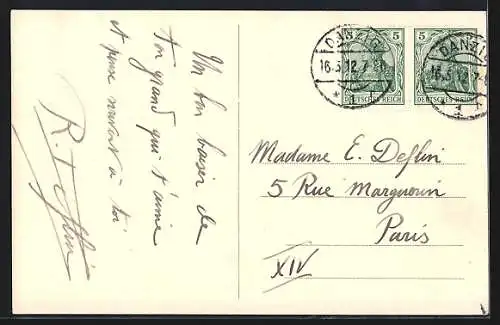 Un bon baiser de
ton grand qui t'aime
et pense souvent à toi
R. Deflin
DANZIG
16.5.12.7-8
* 1
5
DEUTSCHES REICH
DANZIG
16.5.12.7-8
* 1
5
DEUTSCHES REICH
Madame E. Deflin
5 Rue Marguerin
Paris
XIV